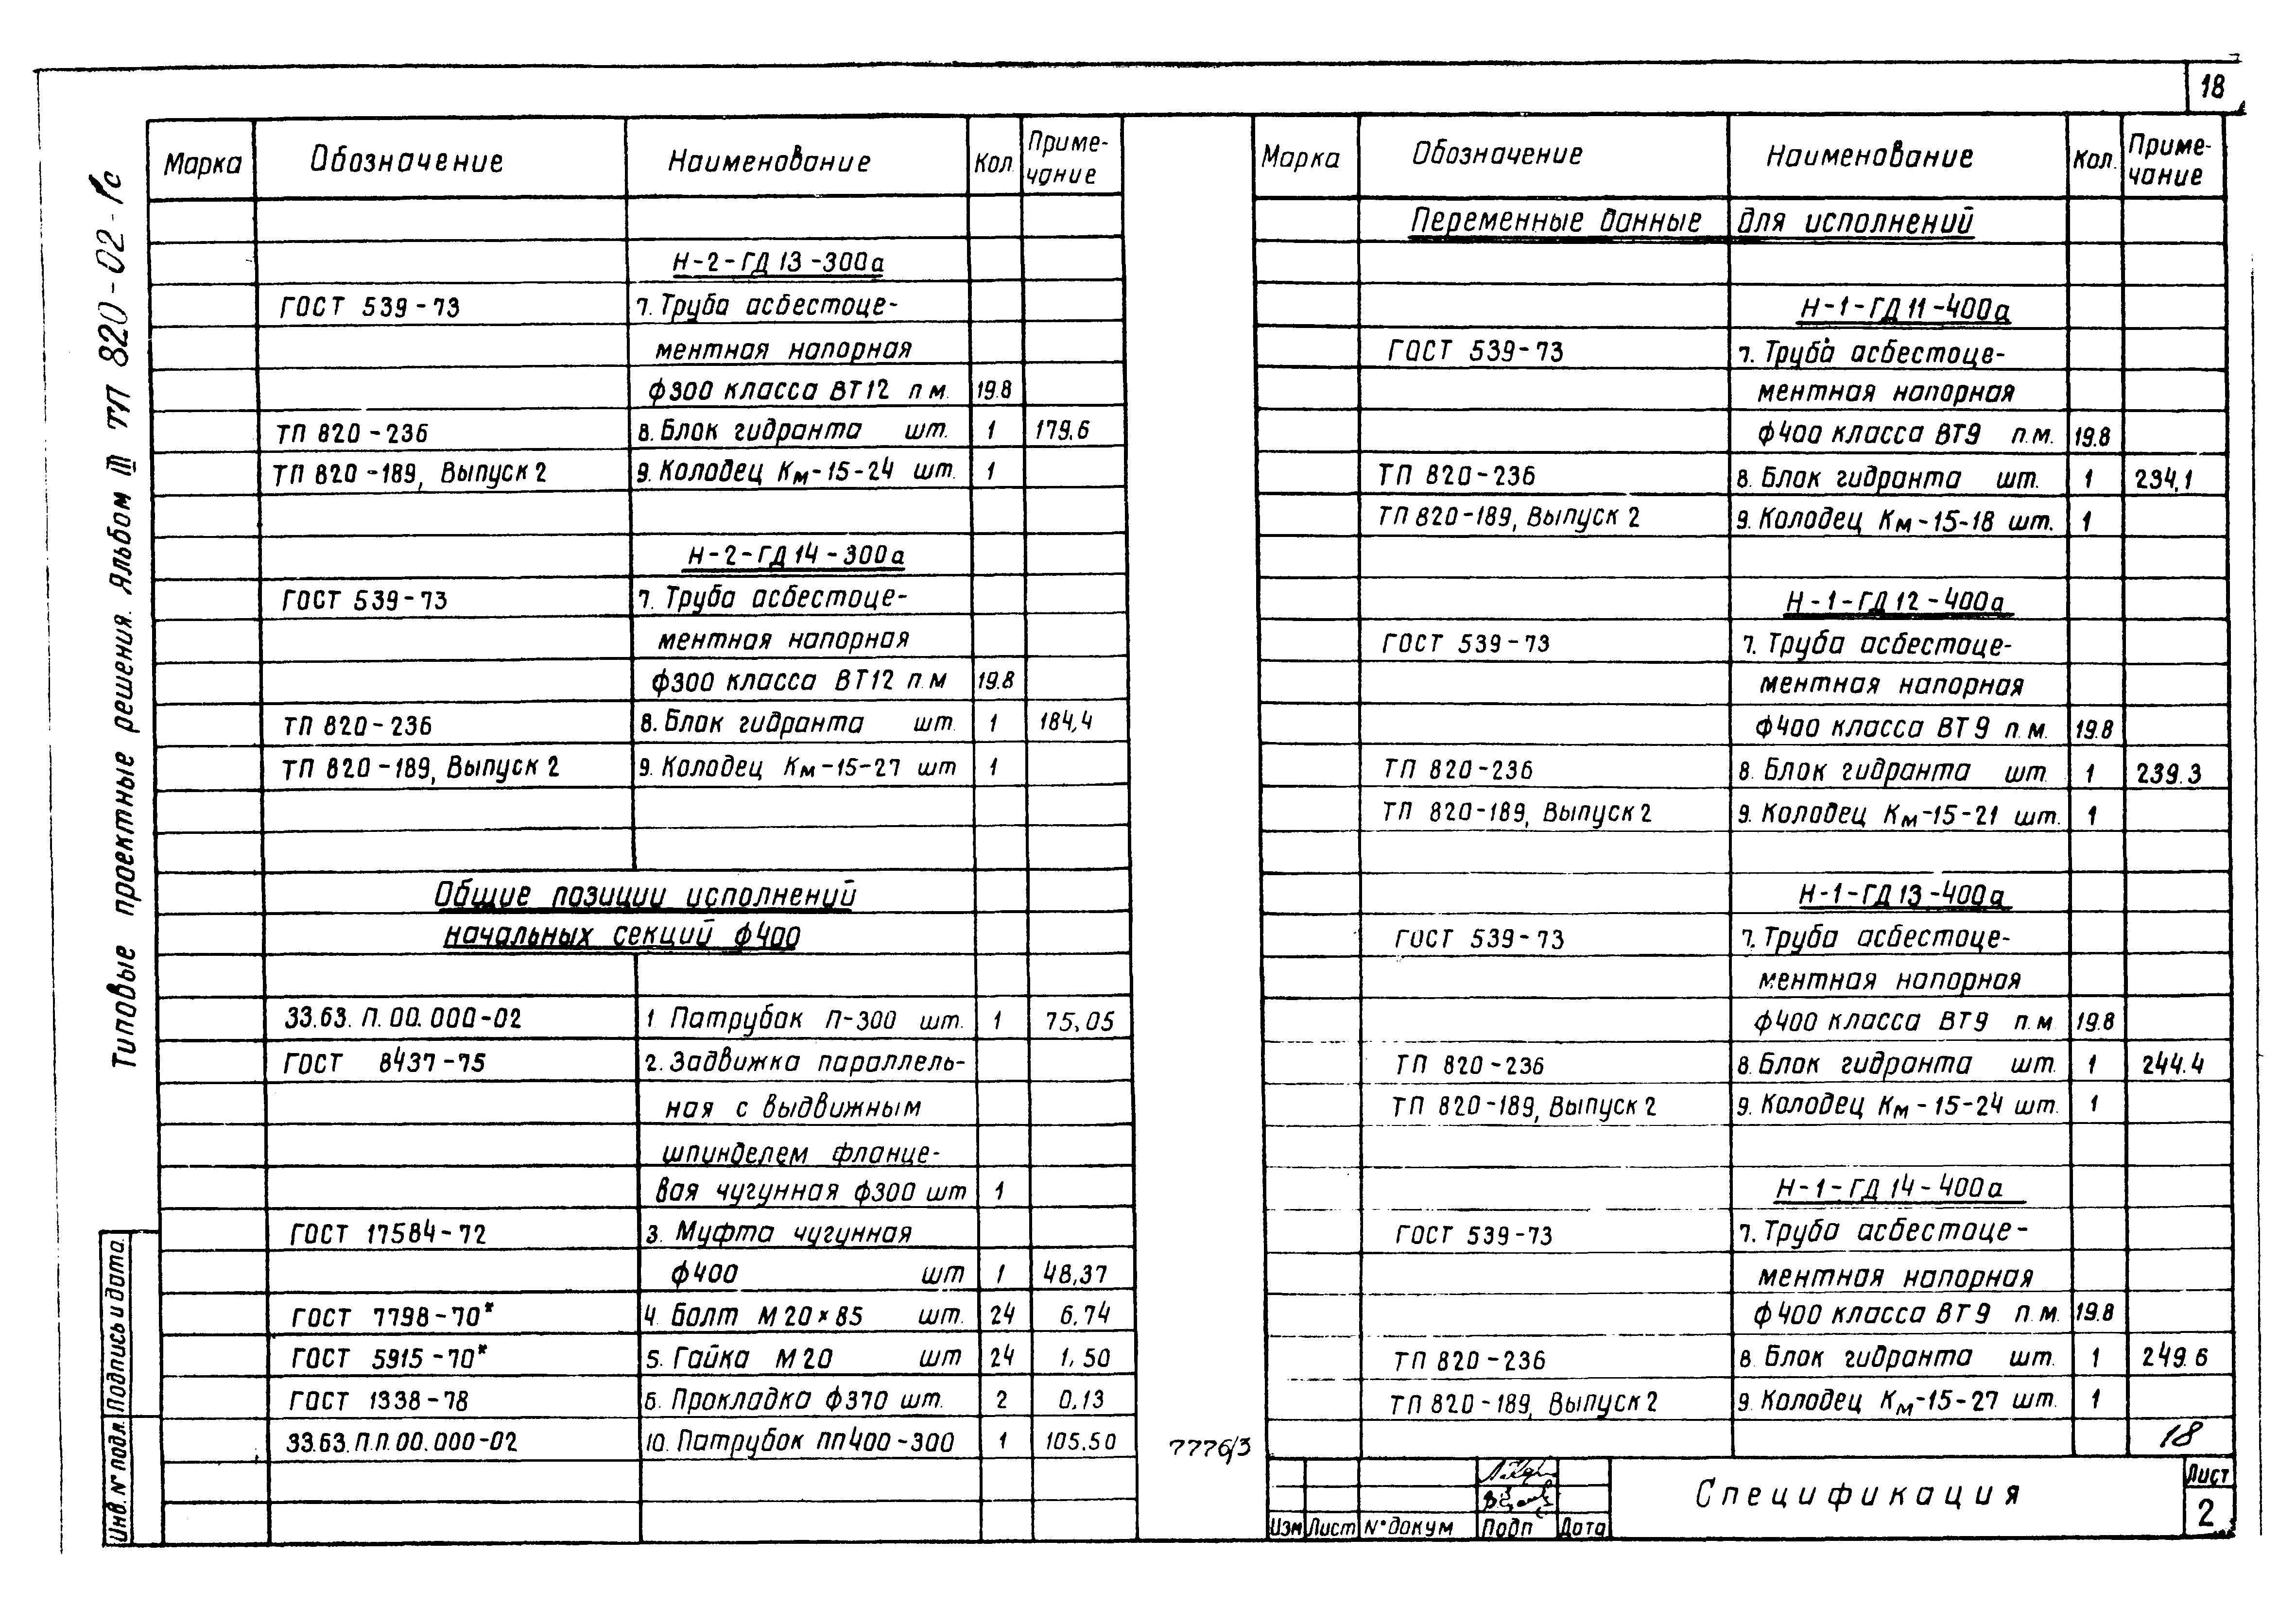 18
Типовые проектные решения. Альбом III ТП 820-02-1с
Марка Обозначение Наименование Кол. Приме-
чание
Н-2-ГД13-300а
ГОСТ 539-73 7. Труба асбестоце-
ментная напорная
ф300 класса ВТ12 п м. 19.8
ТП 820-236 8. Блок гидранта шт. 1 179.6
ТП 820-189, Выпуск 2 9. Колодец Км-15-24 шт. 1
Н-2-ГД14-300а
ГОСТ 539-73 7. Труба асбестоце-
ментная напорная
ф300 класса ВТ12 п м 19.8
ТП 820-236 8. Блок гидранта шт 1 184,4
ТП 820-189, Выпуск 2 9. Колодец Км-15-27 шт 1
Общие позиции исполнений
начальных секций ф400
33.63. П. 00. 000-02 1 Патрубок П-300 шт. 1 75,05
ГОСТ 8437-75 2. Задвижка параллель-
ная с выдвижным
шпинделем фланце-
вая чугунная ф300 шт 1
ГОСТ 17584-72 3. Муфта чугунная
ф400 шт 1 48,37
ГОСТ 7798-70* 4. Болт М20×85 шт. 24 6,74
ГОСТ 5915-70* 5. Гайка М20 шт 24 1,50
ГОСТ 1338-78 6. Прокладка ф370 шт. 2 0,13
33.63.П.П.00.000-02 10. Патрубок ПП400-300 1 105.50
7776/3
Марка Обозначение Наименование Кол. Приме-
чание
Переменные данные для исполнений
Н-1-ГД11-400а
ГОСТ 539-73 7. Труба асбестоце-
ментная напорная
ф400 класса ВТ9 п.м. 19.8
ТП 820-236 8. Блок гидранта шт. 1 234,1
ТП 820-189, Выпуск 2 9. Колодец Км-15-18 шт. 1
Н-1-ГД12-400а
ГОСТ 539-73 7. Труба асбестоце-
ментная напорная
ф400 класса ВТ9 п.м. 19.8
ТП 820-236 8. Блок гидранта шт. 1 239.3
ТП 820-189, Выпуск 2 9. Колодец Км-15-21 шт. 1
Н-1-ГД13-400а
ГОСТ 539-73 7. Труба асбестоце-
ментная напорная
ф400 класса ВТ9 п.м 19.8
ТП 820-236 8. Блок гидранта шт. 1 244.4
ТП 820-189, Выпуск 2 9. Колодец Км-15-24 шт. 1
Н-1-ГД14-400а
ГОСТ 539-73 7. Труба асбестоце-
ментная напорная
ф400 класса ВТ9 п м. 19.8
ТП 820-236 8. Блок гидранта шт. 1 249.6
ТП 820-189, Выпуск 2 9. Колодец Км-15-27 шт. 1
18
Изм Лист N° докум Подп Дата
Спецификация
Лист
2
Инв. N° подл. Подпись и дата.